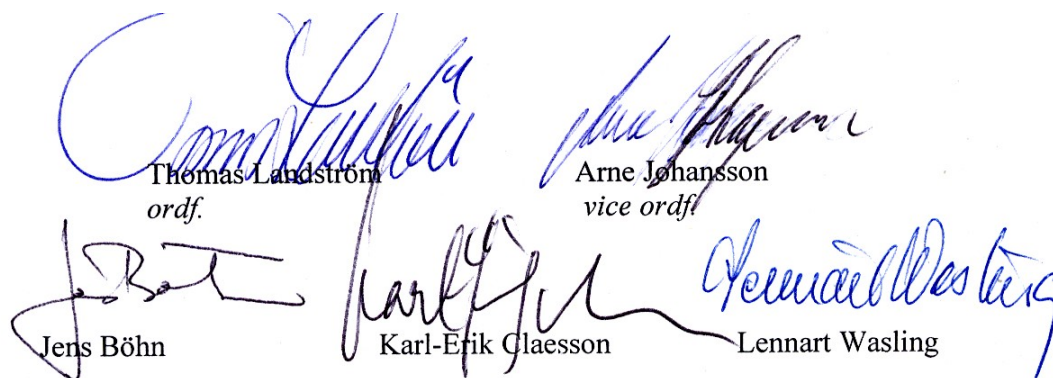 Thomas Landström Arne Johansson
ordf. vice ordf.
Jens Böhn Karl-Erik Claesson Lennart Wasling